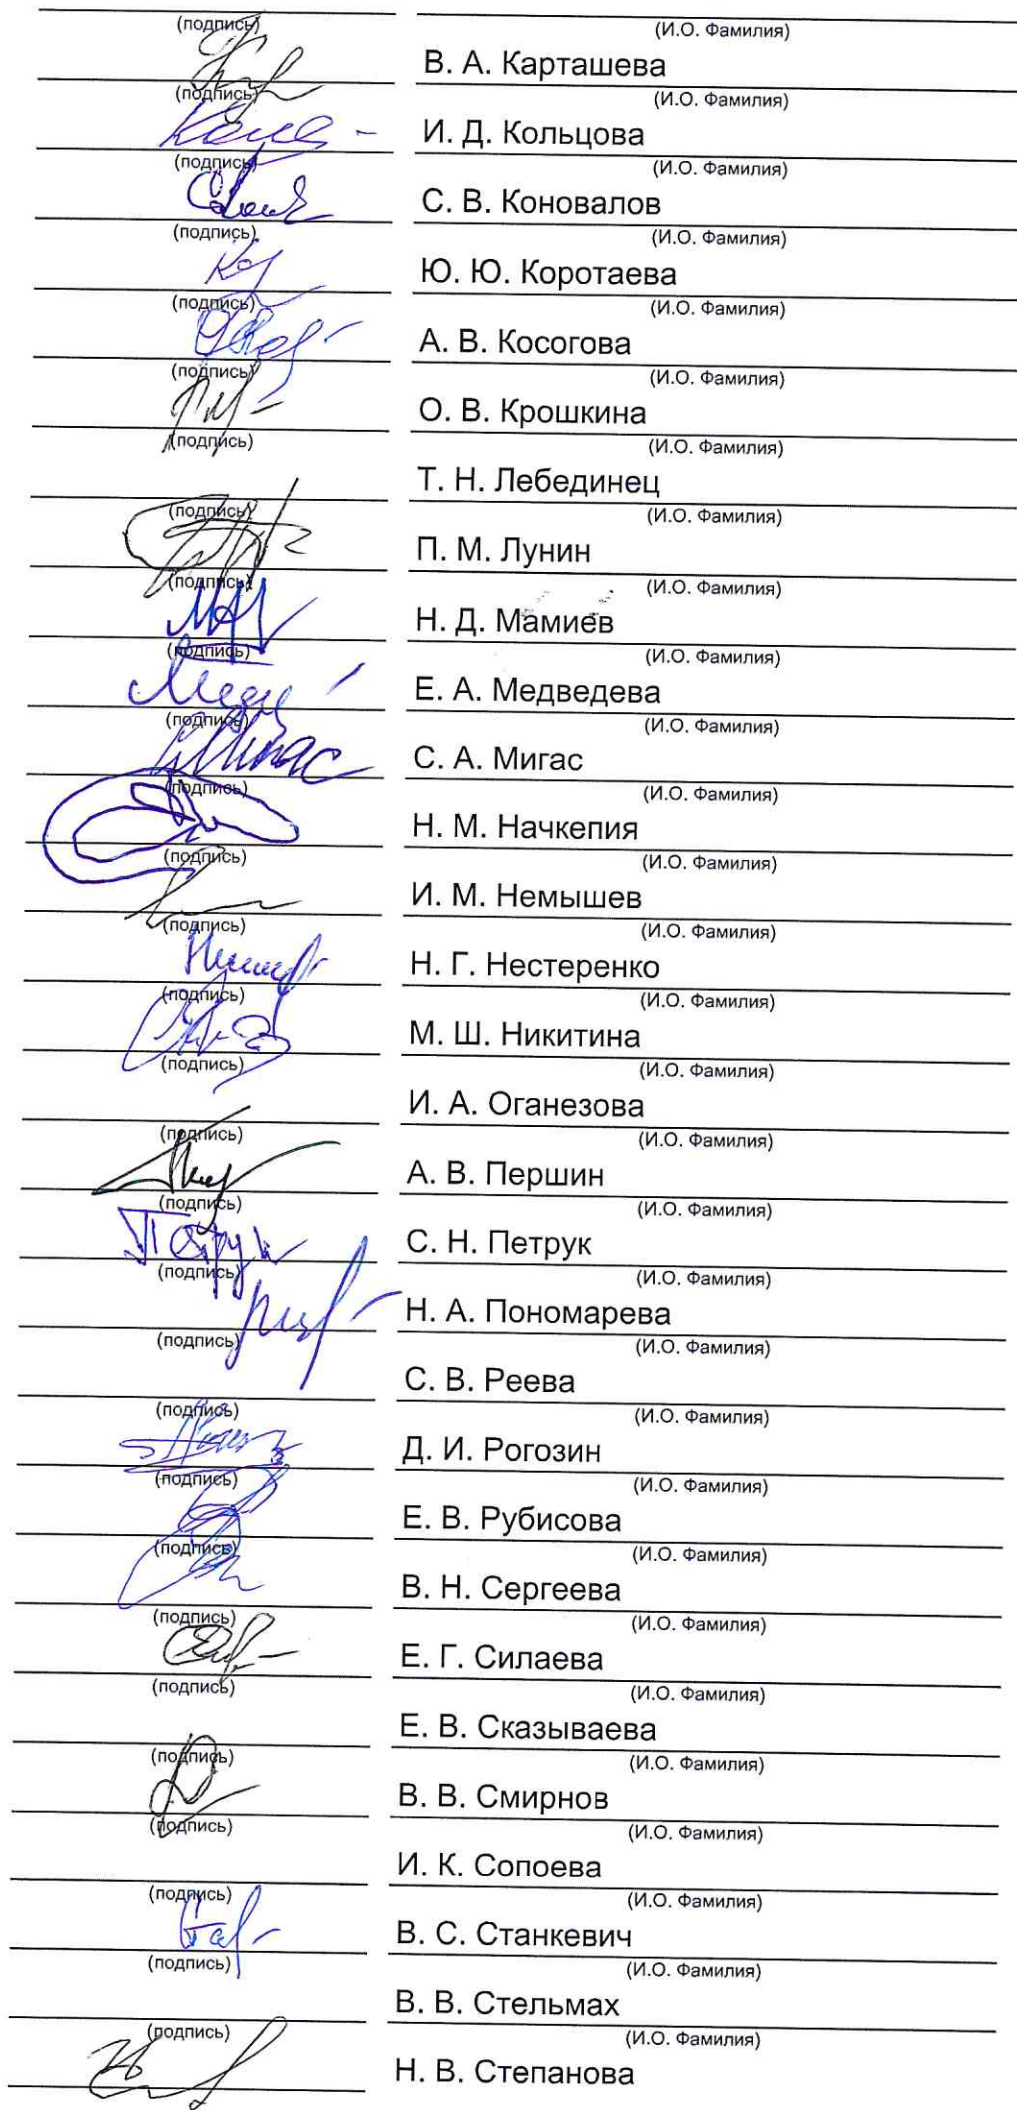 (подпись) (И.О. Фамилия)
В. А. Карташева
(подпись) (И.О. Фамилия)
И. Д. Кольцова
(подпись) (И.О. Фамилия)
С. В. Коновалов
(подпись) (И.О. Фамилия)
Ю. Ю. Коротаева
(подпись) (И.О. Фамилия)
А. В. Косогова
(подпись) (И.О. Фамилия)
О. В. Крошкина
(подпись) (И.О. Фамилия)
Т. Н. Лебединец
(подпись) (И.О. Фамилия)
П. М. Лунин
(подпись) (И.О. Фамилия)
Н. Д. Мамиев
(подпись) (И.О. Фамилия)
Е. А. Медведева
(подпись) (И.О. Фамилия)
С. А. Мигас
(подпись) (И.О. Фамилия)
Н. М. Начкепия
(подпись) (И.О. Фамилия)
И. М. Немышев
(подпись) (И.О. Фамилия)
Н. Г. Нестеренко
(подпись) (И.О. Фамилия)
М. Ш. Никитина
(подпись) (И.О. Фамилия)
И. А. Оганезова
(подпись) (И.О. Фамилия)
А. В. Першин
(подпись) (И.О. Фамилия)
Петрук С. Н. Петрук
(подпись) (И.О. Фамилия)
Н. А. Пономарева
(подпись) (И.О. Фамилия)
С. В. Реева
(подпись) (И.О. Фамилия)
Д. И. Рогозин
(подпись) (И.О. Фамилия)
Е. В. Рубисова
(подпись) (И.О. Фамилия)
В. Н. Сергеева
(подпись) (И.О. Фамилия)
Е. Г. Силаева
(подпись) (И.О. Фамилия)
Е. В. Сказываева
(подпись) (И.О. Фамилия)
В. В. Смирнов
(подпись) (И.О. Фамилия)
И. К. Сопоева
(подпись) (И.О. Фамилия)
В. С. Станкевич
(подпись) (И.О. Фамилия)
В. В. Стельмах
(подпись) (И.О. Фамилия)
Н. В. Степанова